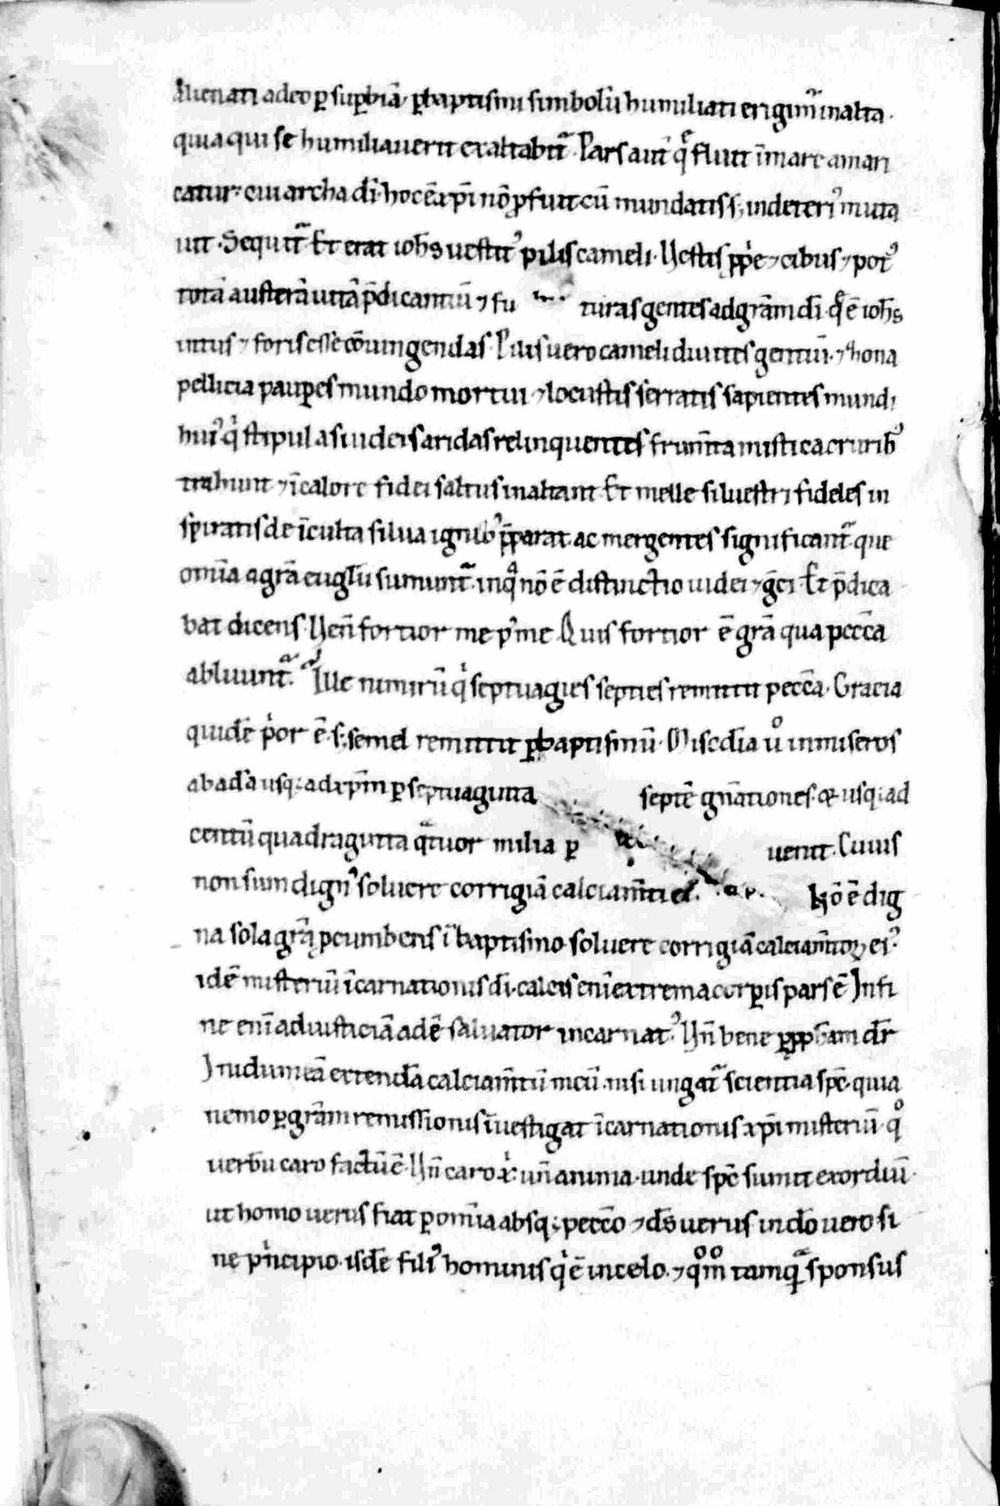 Alienati a deo ꝑ sup̱biā. ꝑ baptismi simbolū humiliati erigimᷓ in alta.
quia qui se humiliauerit exaltabitᷓ. Pars aut̄ q̄ fluit ī mare amari
catur. ⁊ cui archa dī. hoc ē xp̄i nō ꝓfuit cū mundatis s; in deteriꝰ muta
uit. Sequitᷓ Et erat ioh̄s uestitꝰ pilis cameli. Uestis pp̄e ⁊ cibus ⁊ potꝰ
totā austerā uitā p̄dicantiū ⁊ fu turas gentes ad grām dī. q̄ ē ioh̄s
intus ⁊ foris esse cōiungendas. Pilis uero cameli diuites gentiū. ⁊ zona
pellicia paup̱es mundo mortui ⁊ locustis serratis sapientes mundi
huiꝰ qͥ stipulas iudeis aridas relinquentes frum̄ta mistica cruribꝰ
trahunt ⁊ ī calore fidei saltus in altant Et melle siluestri fideles in
spiratis de īculta silua ignibꝰ p̄parat ac mergentes significantᷓ que
om̄ia a grā euglii sumuntᷓ. in qͣ nō ē distinctio iudei ⁊ g̅ci Et p̄dica
bat dicens. Uen̄ fortior me pꝰ me Quis fortior ē grā qua pecc̄a
abluuntᷓ. Ille nimirū qͥ septuagies septies remittit pecc̄a. Gracia
quidē pͥor ē. s; semel remittit ꝑ baptismū. Misc̄dia uͦ in miseros
ab adā usq; ad xp̄m ꝑ septuaginta septē gn̄ationes. & usq; ad
centū quadraginta qͣtuor milia ꝑ uenit. Cuius
non sum dignꝰ soluere corrigiā calciam̄ti eꝰ. Nō ē dig
na sola grā ꝓcumbens ī baptismo soluere corrigiā calciam̄toꝝ eiꝰ.
idē misteriū īcarnationis dī. calcis enī extrema corp̱is pars ē In fi
ne enī ad iusticiā adē saluator incarnatꝰ. Un̄ bene ꝑ ꝓph̄am dr̄
In idumeā extendā calciam̄tū meū. nisi ungatᷓ scientia spē. quia
nemo ꝑ grām remissionis īuestigat īcarnationis xp̄i misteriū. qͦ
uerbū caro factū ē. Un̄ caro xͥ. un̄ anima. unde spē sumit exordiū.
ut homo uerus fiat ꝑ om̄ia absq; pecc̄o ⁊ ds̄ uerus in dō uero si
ne pͥncipio. isdē filiꝰ hominis qͥ ē in celo. ⁊ qͦmͦ tamqͣ sponsus